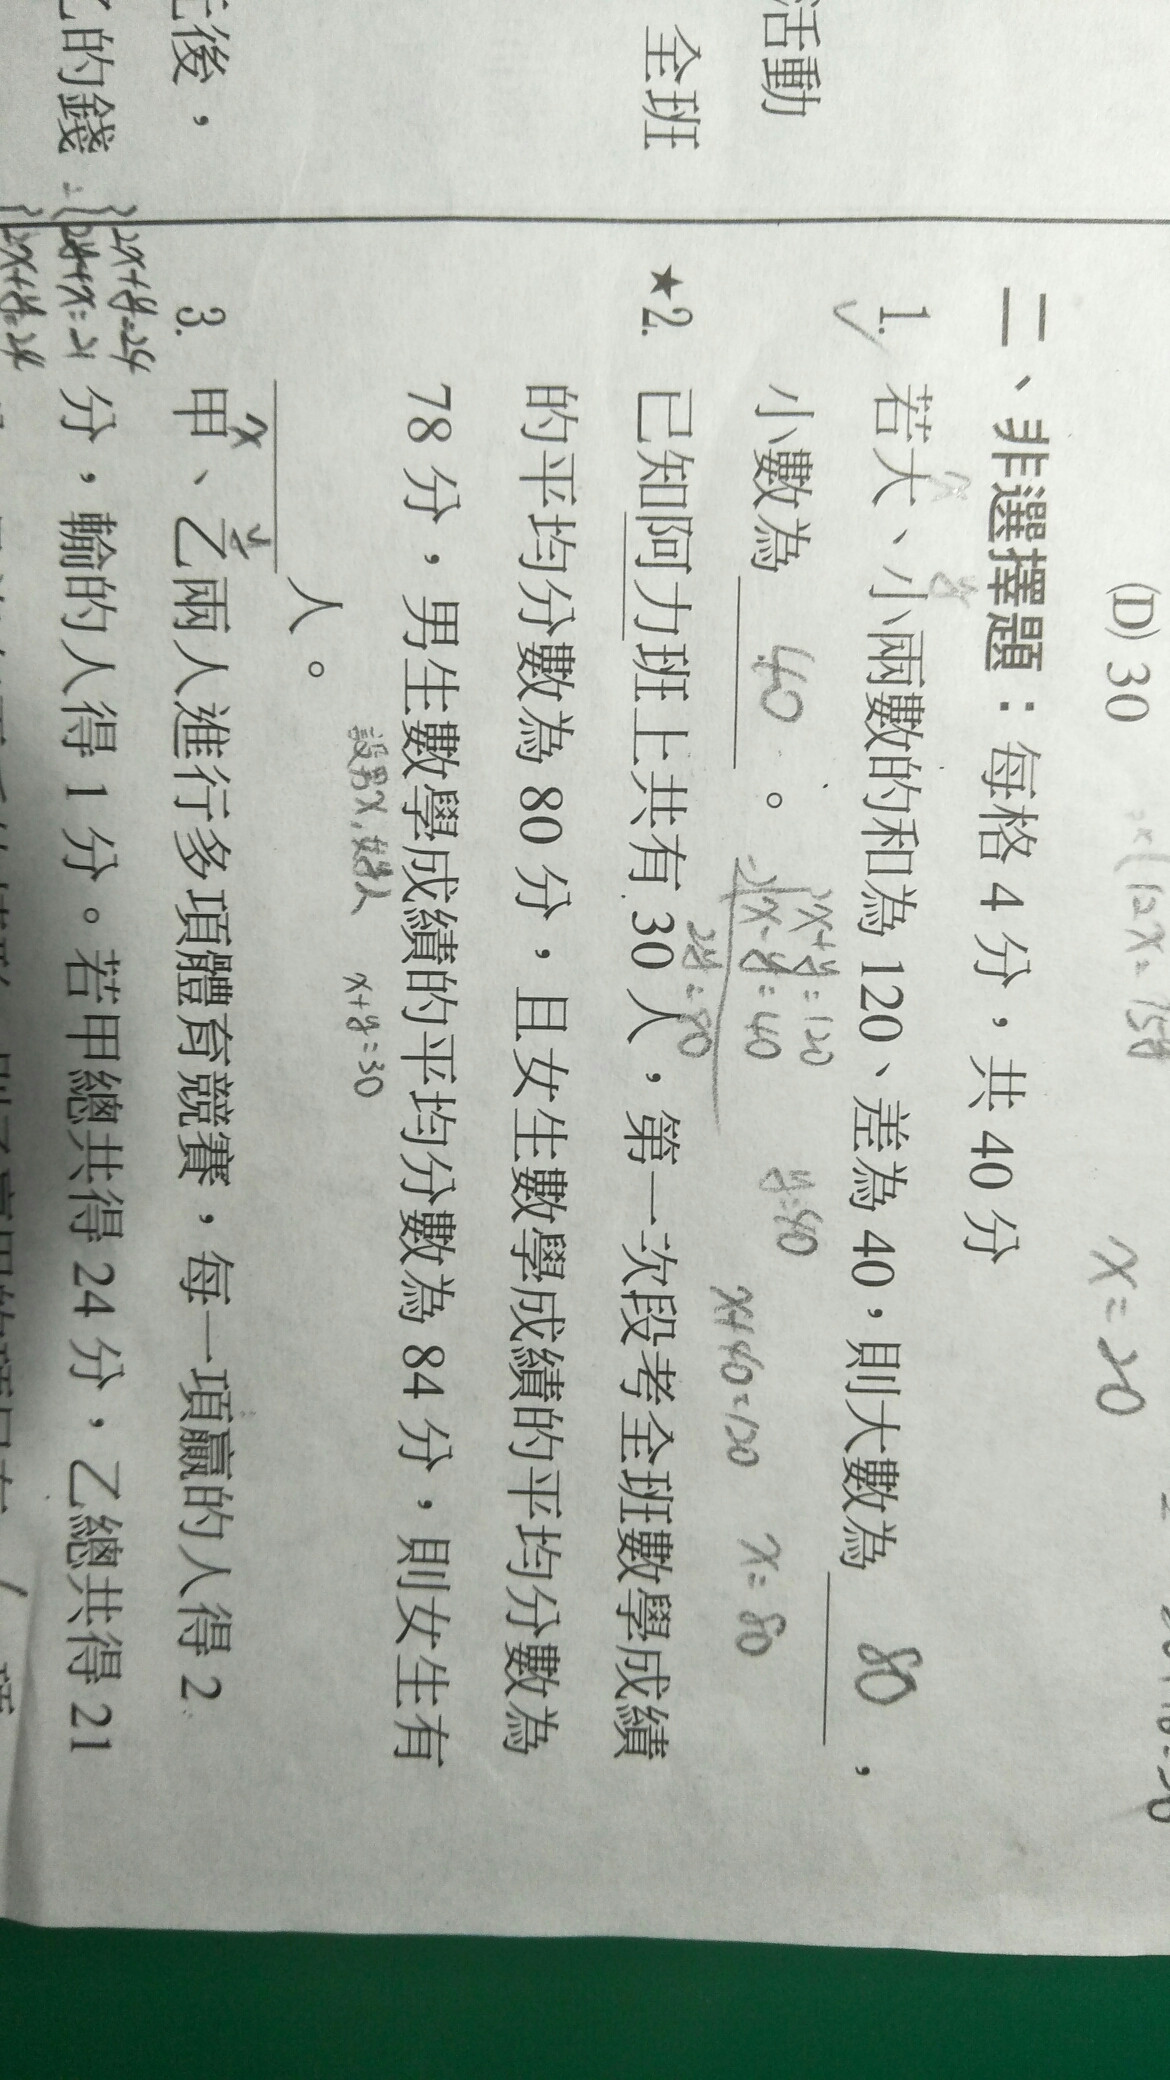 活動
全班
後，
的錢
(D) 30
x = 20
二、非選擇題：每格 4 分，共 40 分
1. 若大、小兩數的和為 120、差為 40，則大數為 80，
x
y
小數為 40。
x+y=120
-) x-y=40
2y=80
y=40
x+40=120
x=80
★2. 已知阿力班上共有 30 人，第一次段考全班數學成績
的平均分數為 80 分，且女生數學成績的平均分數為
78 分，男生數學成績的平均分數為 84 分，則女生有
設男x,女y人
x+y=30
人。
3. 甲、乙兩人進行多項體育競賽，每一項贏的人得 2
x
y
分，輸的人得 1 分。若甲總共得 24 分，乙總共得 21
2x+y=24
2y+x=21
2x+y=24